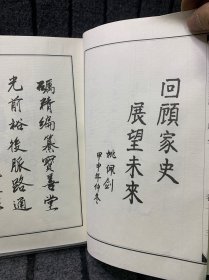 回顾家史
展望未来
姚佩剑
甲申年仲冬
礪精编纂宝善堂
光前裕後脈路通